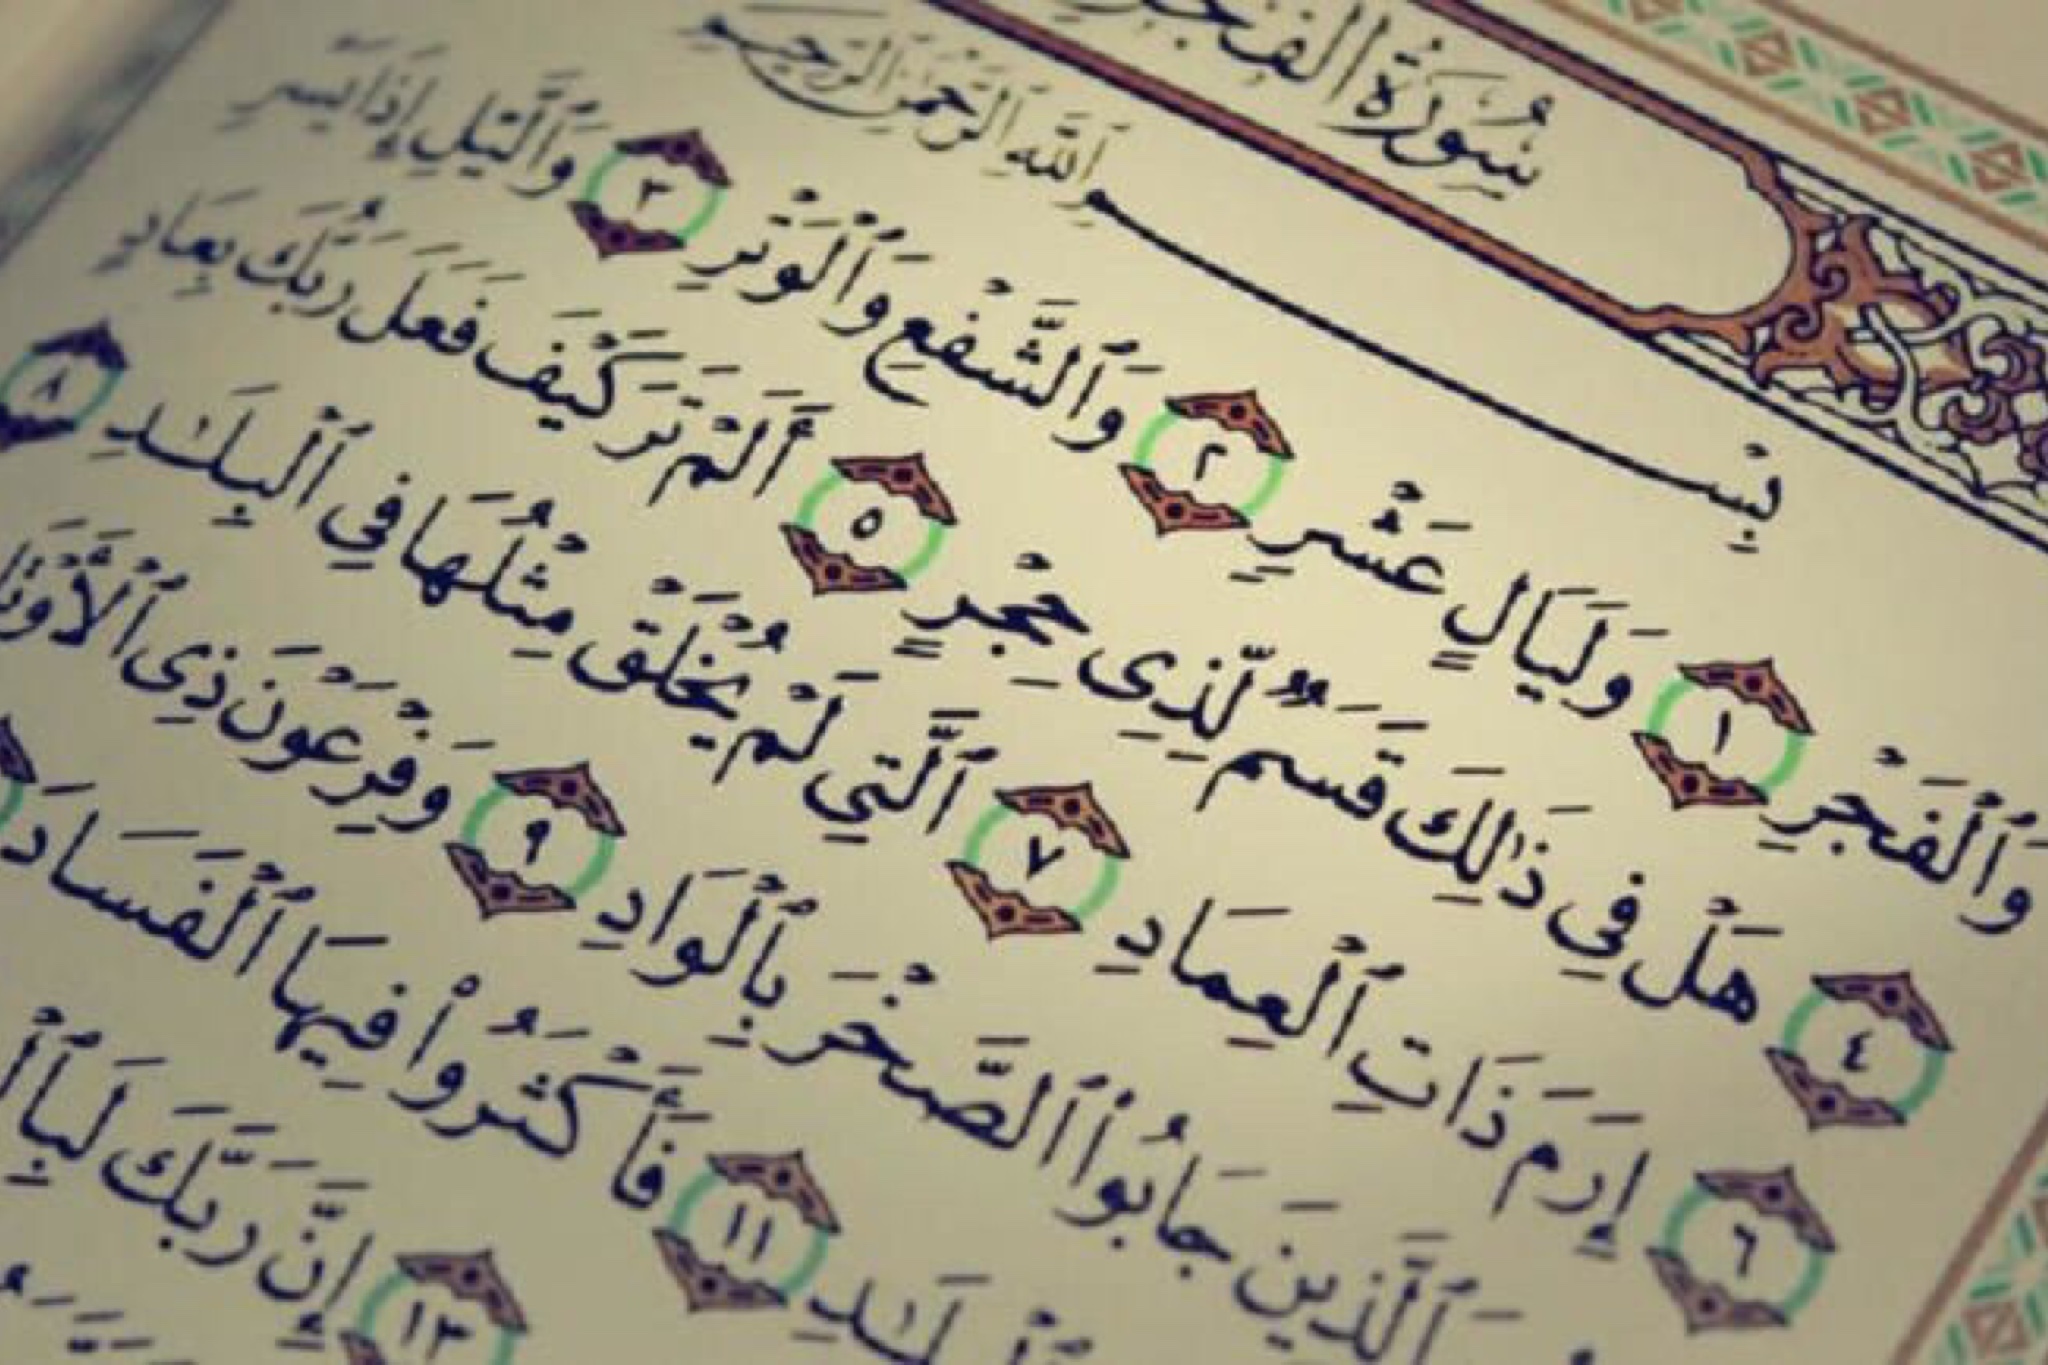 سُورَةُ الْفَجْرِ
بِسْمِ ٱللَّهِ ٱلرَّحْمَٰنِ ٱلرَّحِيمِ
وَٱلْفَجْرِ ١ وَلَيَالٍ عَشْرٍ ٢ وَٱلشَّفْعِ وَٱلْوَتْرِ ٣ وَٱلَّيْلِ إِذَا يَسْرِ
٤ هَلْ فِي ذَٰلِكَ قَسَمٌ لِّذِى حِجْرٍ ٥ أَلَمْ تَرَ كَيْفَ فَعَلَ رَبُّكَ بِعَادٍ
٦ إِرَمَ ذَاتِ ٱلْعِمَادِ ٧ ٱلَّتِي لَمْ يُخْلَقْ مِثْلُهَا فِي ٱلْبِلَٰدِ ٨
ٱلَّذِينَ جَابُوا۟ ٱلصَّخْرَ بِٱلْوَادِ ٩ وَفِرْعَوْنَ ذِى ٱلْأَوْتَا
لَٰدِ ١١ فَأَكْثَرُوا۟ فِيهَا ٱلْفَسَادَ
١٣ إِنَّ رَبَّكَ